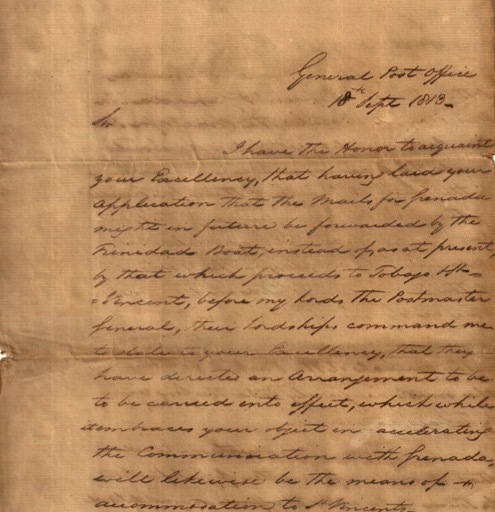 General Post Office
18th Sept 1813_
Sir
I have the Honor to acquaint
your Excellency, that having laid your
Application that the Mails for Grenada
might in future be forwarded by the
Trinidad Boat, instead of, as at present,
by that which proceeds to Tobago & St=
=Vincent, before my Lords the Postmaster
General, their Lordships command me
to state to your Excellency, that they
have directed an Arrangement to be
to be carried into effect, which while
it embraces your object in accelerating
the Communication with Grenada,
will likewise be the means of
accommodation to St Vincents_